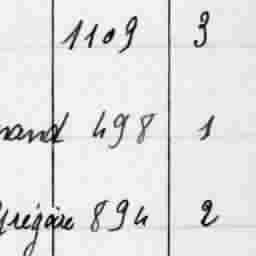 1109 3
nand 498 1
Grégoire 894 2